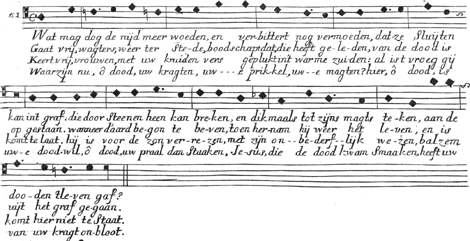 61
Wat mag dog de nijd meer woeden, en verbittert nog vermoeden, dat-ze Sluijten
Gaat vrij, wagters, weer ter Ste-de, boodschapt dat, die heeft ge-le-den, van de dood is
Keert vrij, vrouwen, met uw kruiden vers gepluktint warme zuiden; al ist vroeg gij
Waar zijn nu, ô dood, uw kragten, uw---- prikkel, uw--e magten? hier, ô dood, is
kan int graf, die door Steenen heen kan bre-ken, en dikmaals tot zijns magts te-ken, aan de
op gestaan. wanneer daard be-gon te be-ven, toen her-nam hij weer het le-ven, en is
komt te laat. hij is voor de zon ver-re-zen, met zijn on--be-derf--lijk we-zen, balzem
uw-e dood-wil, ô dood, uw praal dan Staaken, Je-sus, die de dood kwam Smaaken, heeft uw
doo-den tle-ven gaf?
uijt het graf ge-gaan.
komt hier niet te Staat.
van uw kragt on-bloot.